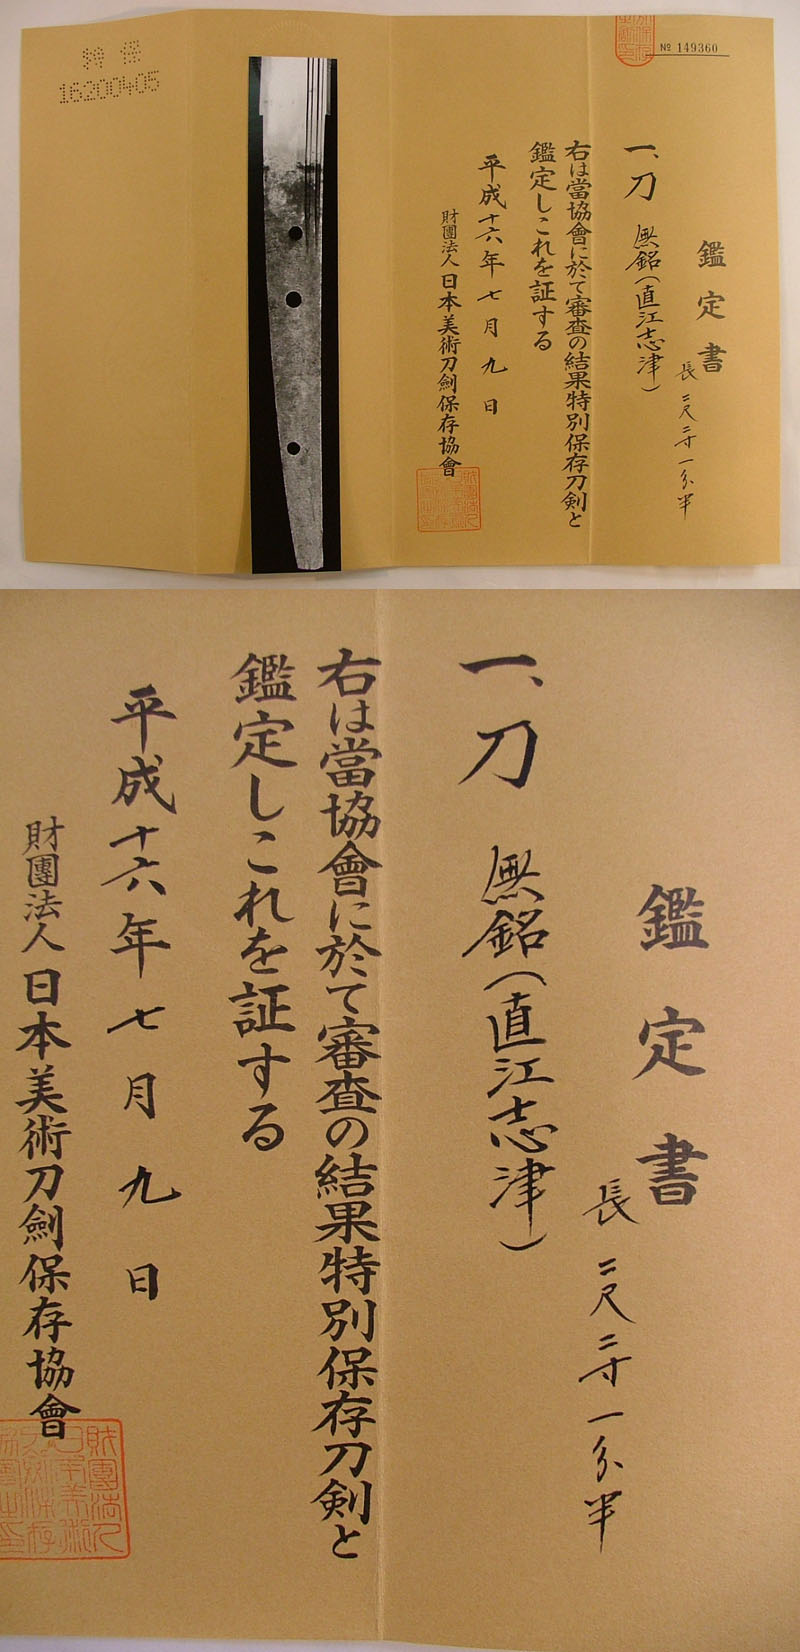 特保
16200405
№ 149360
鑑定書
長二尺二寸一分半
一、刀 無銘(直江志津)
右は當協會に於て審査の結果特別保存刀剣と
鑑定しこれを証する
平成十六年七月九日
財團法人日本美術刀劍保存協會
鑑定書
長二尺二寸一分半
一、刀 無銘(直江志津)
右は當協會に於て審査の結果特別保存刀剣と
鑑定しこれを証する
平成十六年七月九日
財團法人日本美術刀劍保存協會